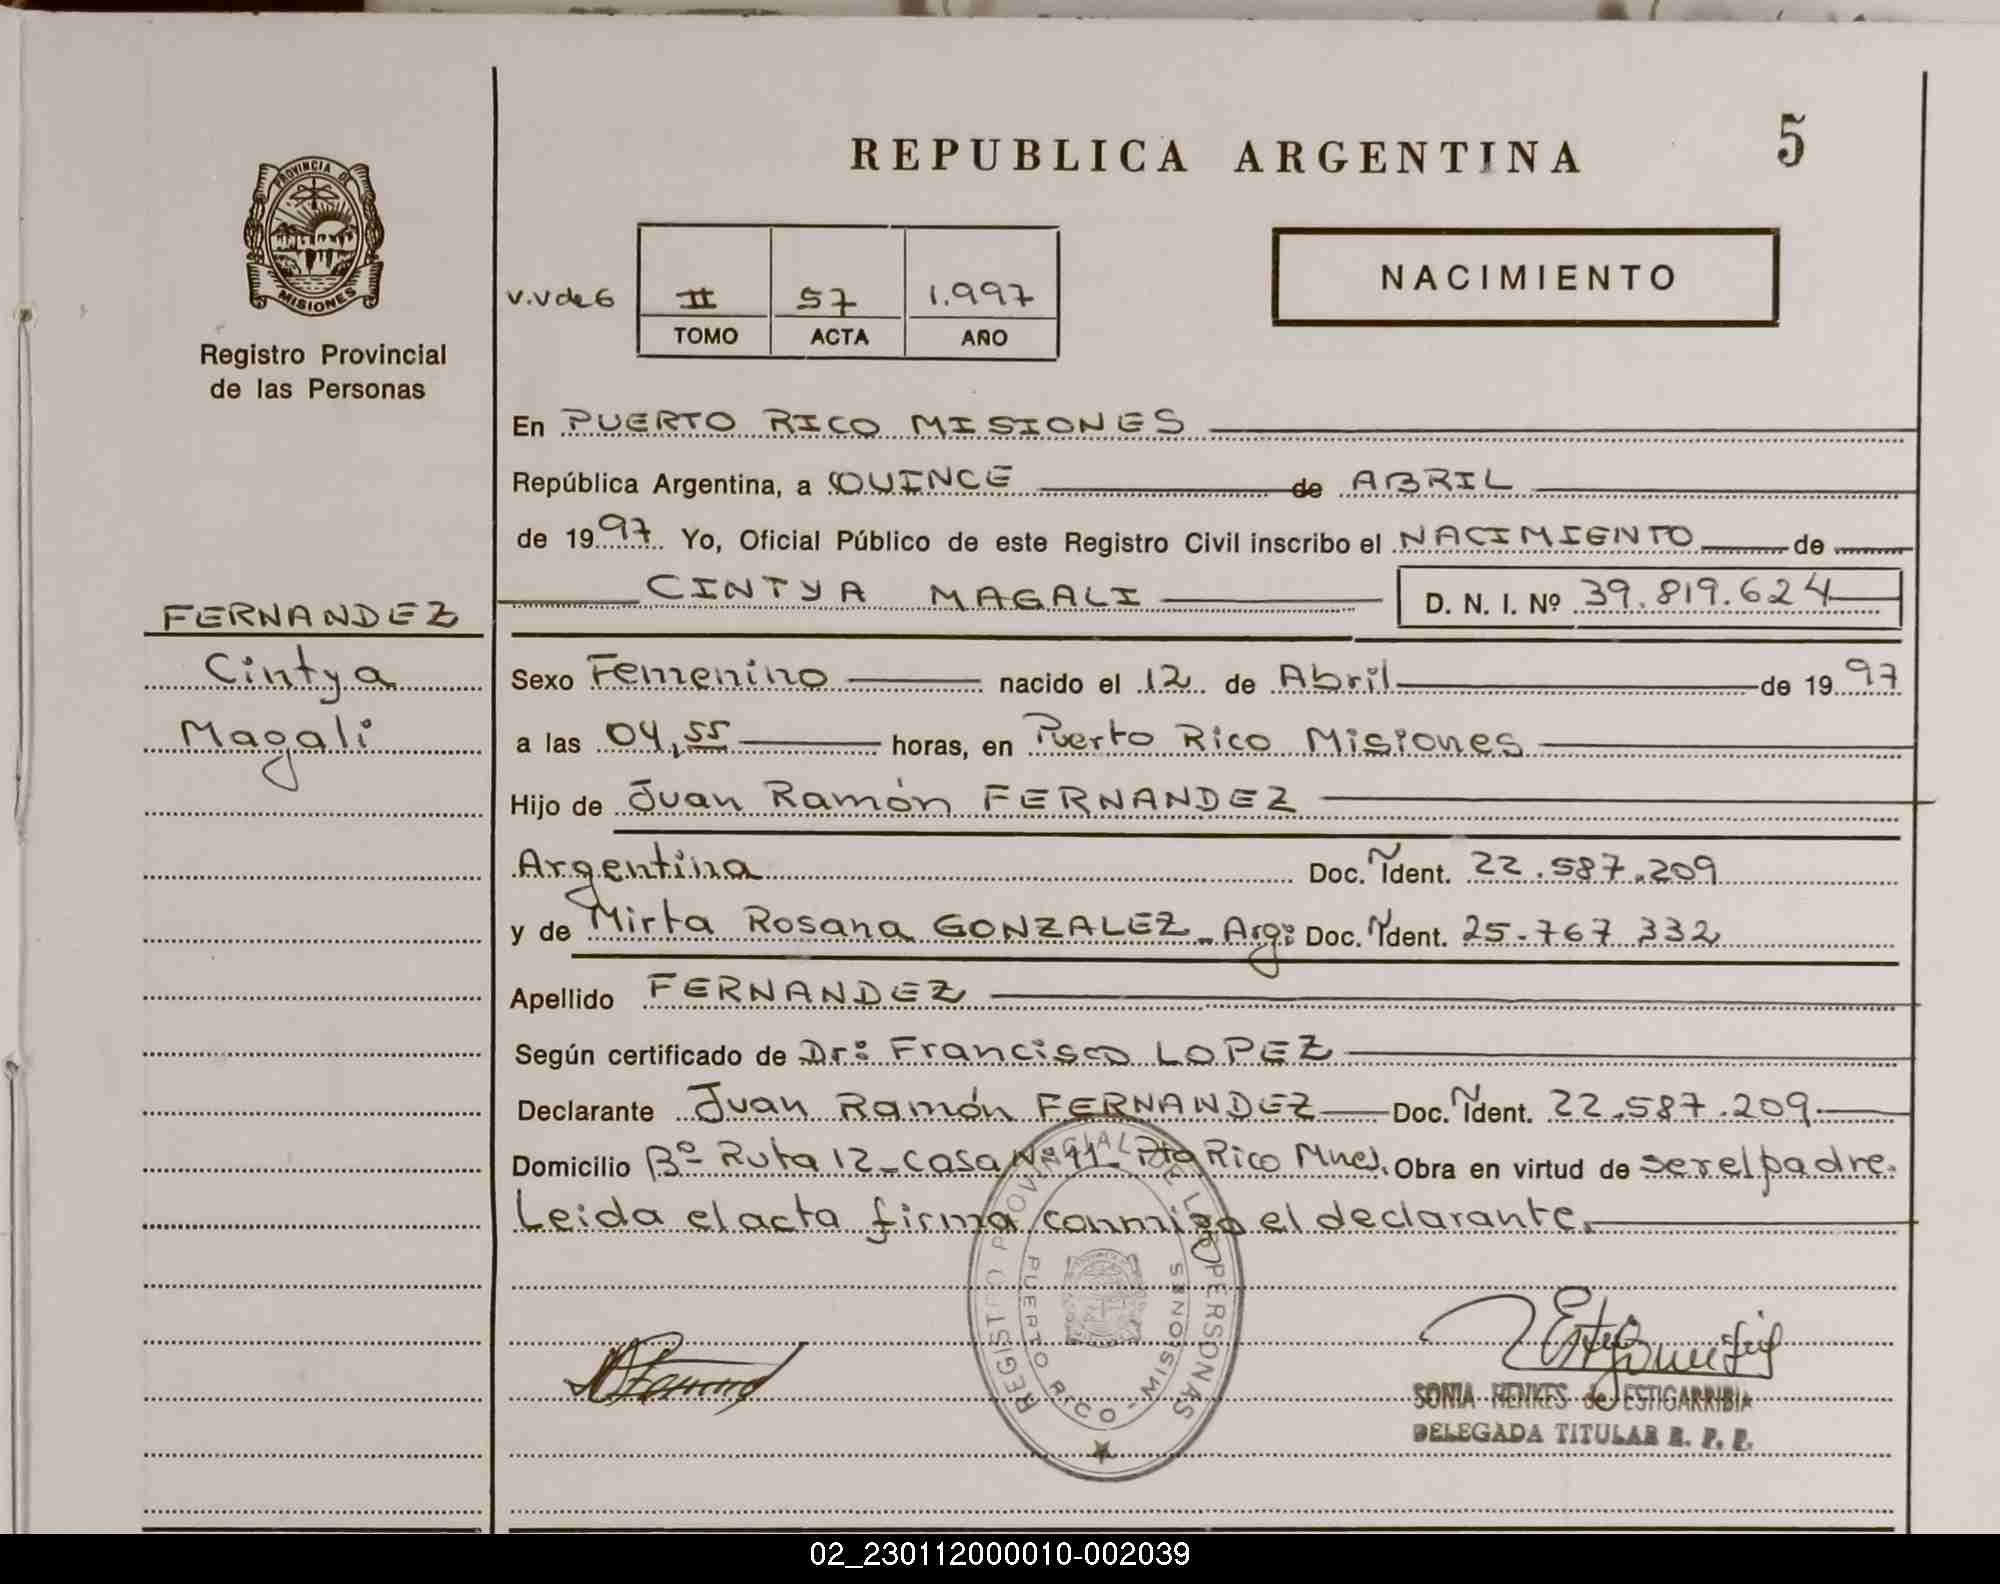 REPUBLICA ARGENTINA
5
PROVINCIA DE
MISIONES
Registro Provincial
de las Personas
NACIMIENTO
v.v de 6
II 57 1.997
TOMO ACTA AÑO
En PUERTO RICO MISIONES
República Argentina, a QUINCE de ABRIL
de 1997 Yo, Oficial Público de este Registro Civil inscribo el NACIMIENTO de
CINTYA MAGALI D. N. I. Nº 39.819.624
FERNANDEZ
Cintya
Magali
Sexo Femenino nacido el 12 de Abril de 1997
a las 04,55 horas, en Puerto Rico Misiones
Hijo de Juan Ramón FERNANDEZ
Argentina Doc. Ident. 22.587.209
y de Mirta Rosana GONZALEZ - Arg: Doc. Ident. 25.767 332
Apellido FERNANDEZ
Según certificado de Dr: Francisco LOPEZ
Declarante Juan Ramón FERNANDEZ Doc. Ident. 22.587.209
Domicilio Bº Ruta 12 - casa Nº 91 - Pto Rico Mnes. Obra en virtud de ser el padre.
Leida el acta firma conmigo el declarante.
REGISTRO PROVINCIAL DE LAS PERSONAS
PUERTO RICO - MISIONES
SONIA HENKES de ESTIGARRIBIA
DELEGADA TITULAR R. P. P.
02_230112000010-002039